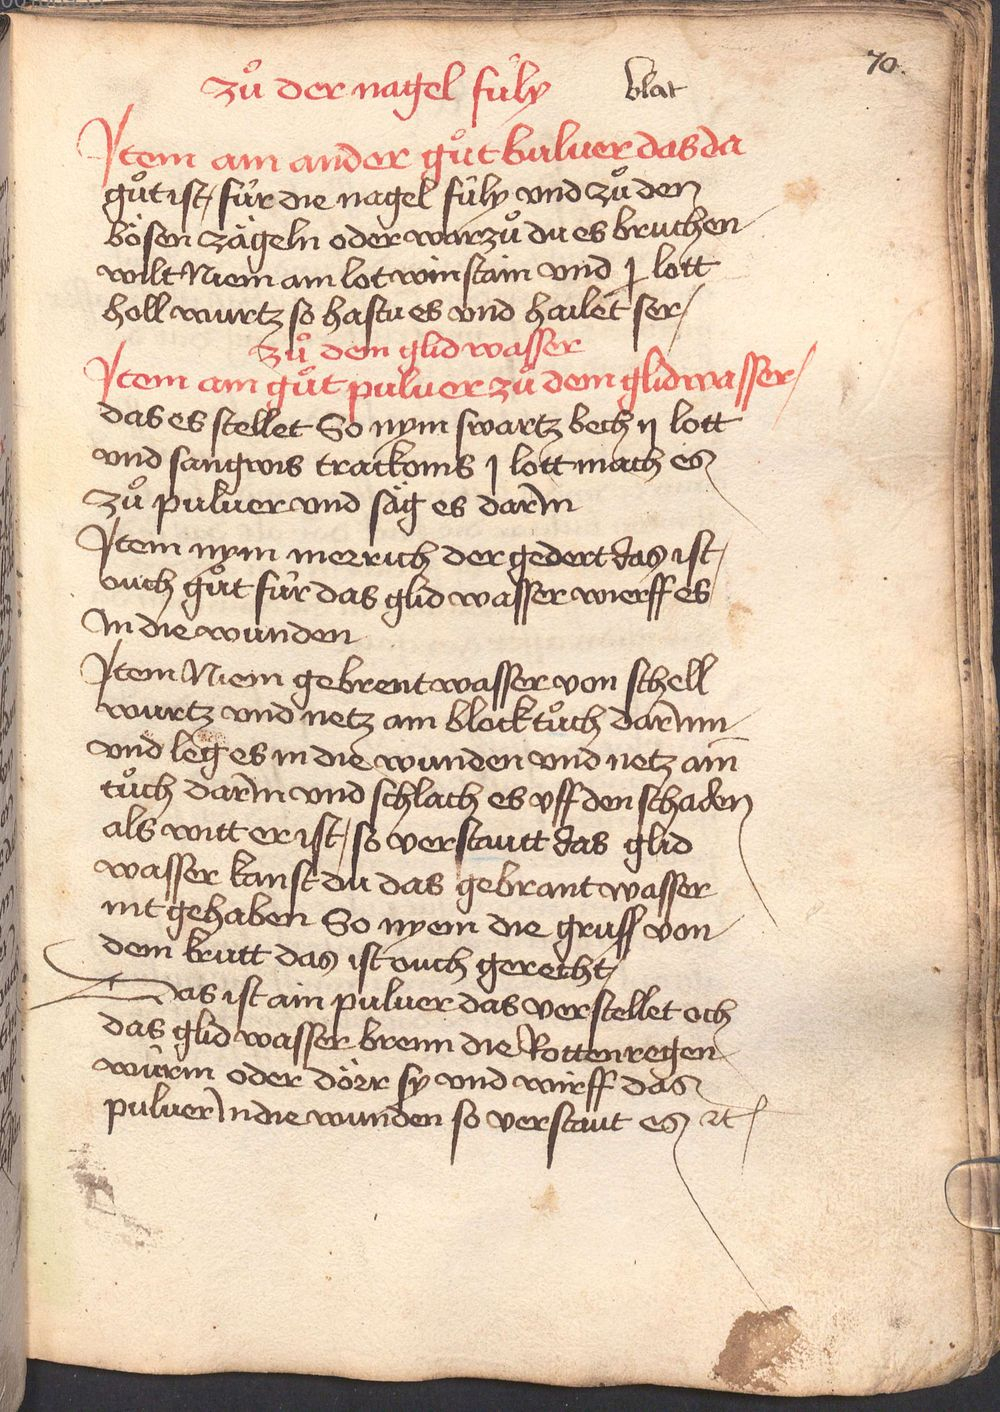 70.
zuͦ der nagel fúly blat
Item ain ander guͦt buluer das da
guͦt ist / fúr die nagel fúly vnd zuͦ den
bösen zägeln oder warzuͦ du es bruchen
wilt Niem ain lot winstain vnd j lott
holl wurtz so hastu es vnd hailet ser /
zuͦ dem glid wasser
Item ain guͦt puluer zuͦ dem glidwasser /
das es stellet So nym swartz bech ij lott
vnd sangwis trackoms j lott mach es
zuͦ puluer vnd säg es darin
Item nym merrich der gedert das ist /
ouch guͦt fúr das glid wasser wierff es
In die wunden
Item Niem gebrent wasser von schell
wurtz vnd netz ain blocktuͦch darinn
vnd leg es in die wunden vnd netz ain
tuͦch darin vnd schlach es vff den schaden
als witt er ist / so verstautt das glid
wasser kanst du das gebrant wasser
nit gehaben So nyem die gruff von
dem krutt das ist ouch gerecht /
Das ist ain puluer das verstellet och
das glid wasser brenn die Rotten regen
wúrm oder dörr sy vnd wirff das
puluer In die wunden so verstaut es rt